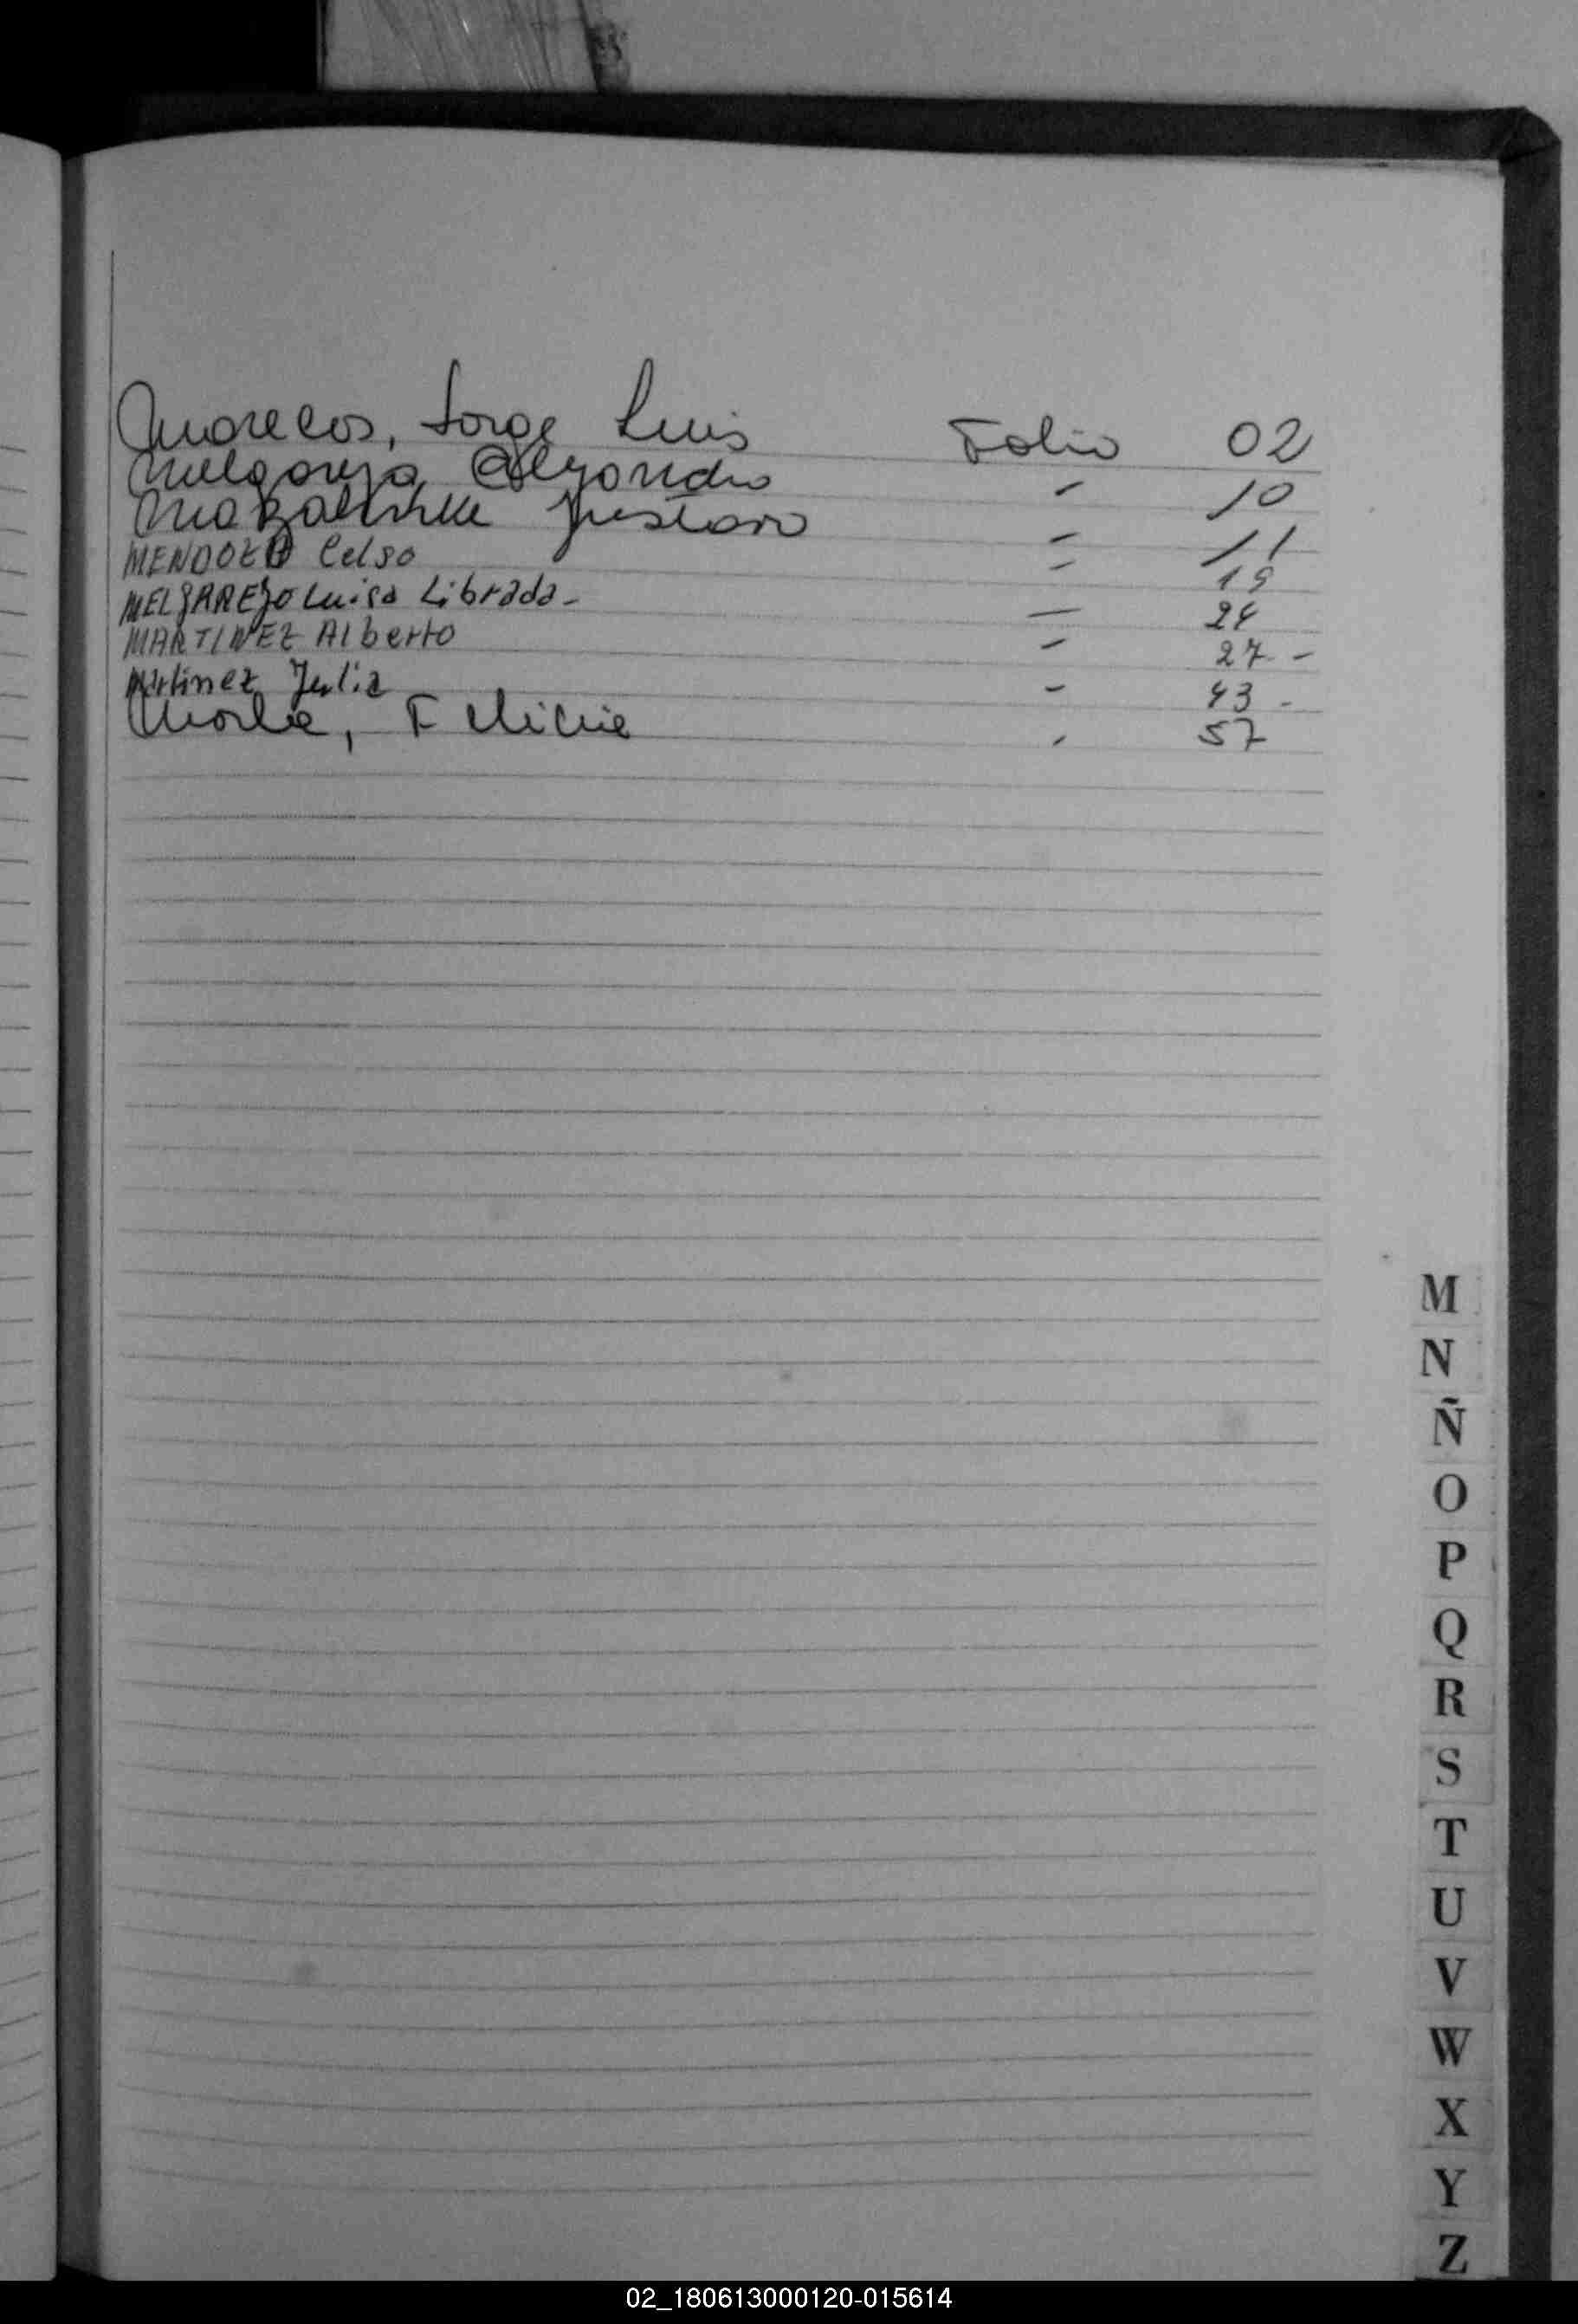 Marecos, Jorge Luis Folio 02
Melgarejo, Alejandro " 10
Gustavo " 11
MENDOZA Celso " 19
MELGAREJO Luisa Librada - — 24
MARTINEZ Alberto " 27 -
Martinez Julia " 43 -
" 57
M
N
Ñ
O
P
Q
R
S
T
U
V
W
X
Y
Z
02_180613000120-015614